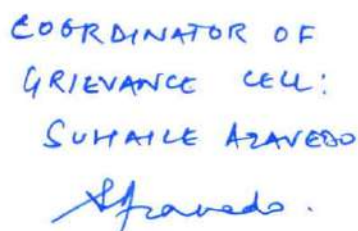 COORDINATOR OF
GRIEVANCE CELL:
SUHAILE AZAVEDO
SAzavedo.